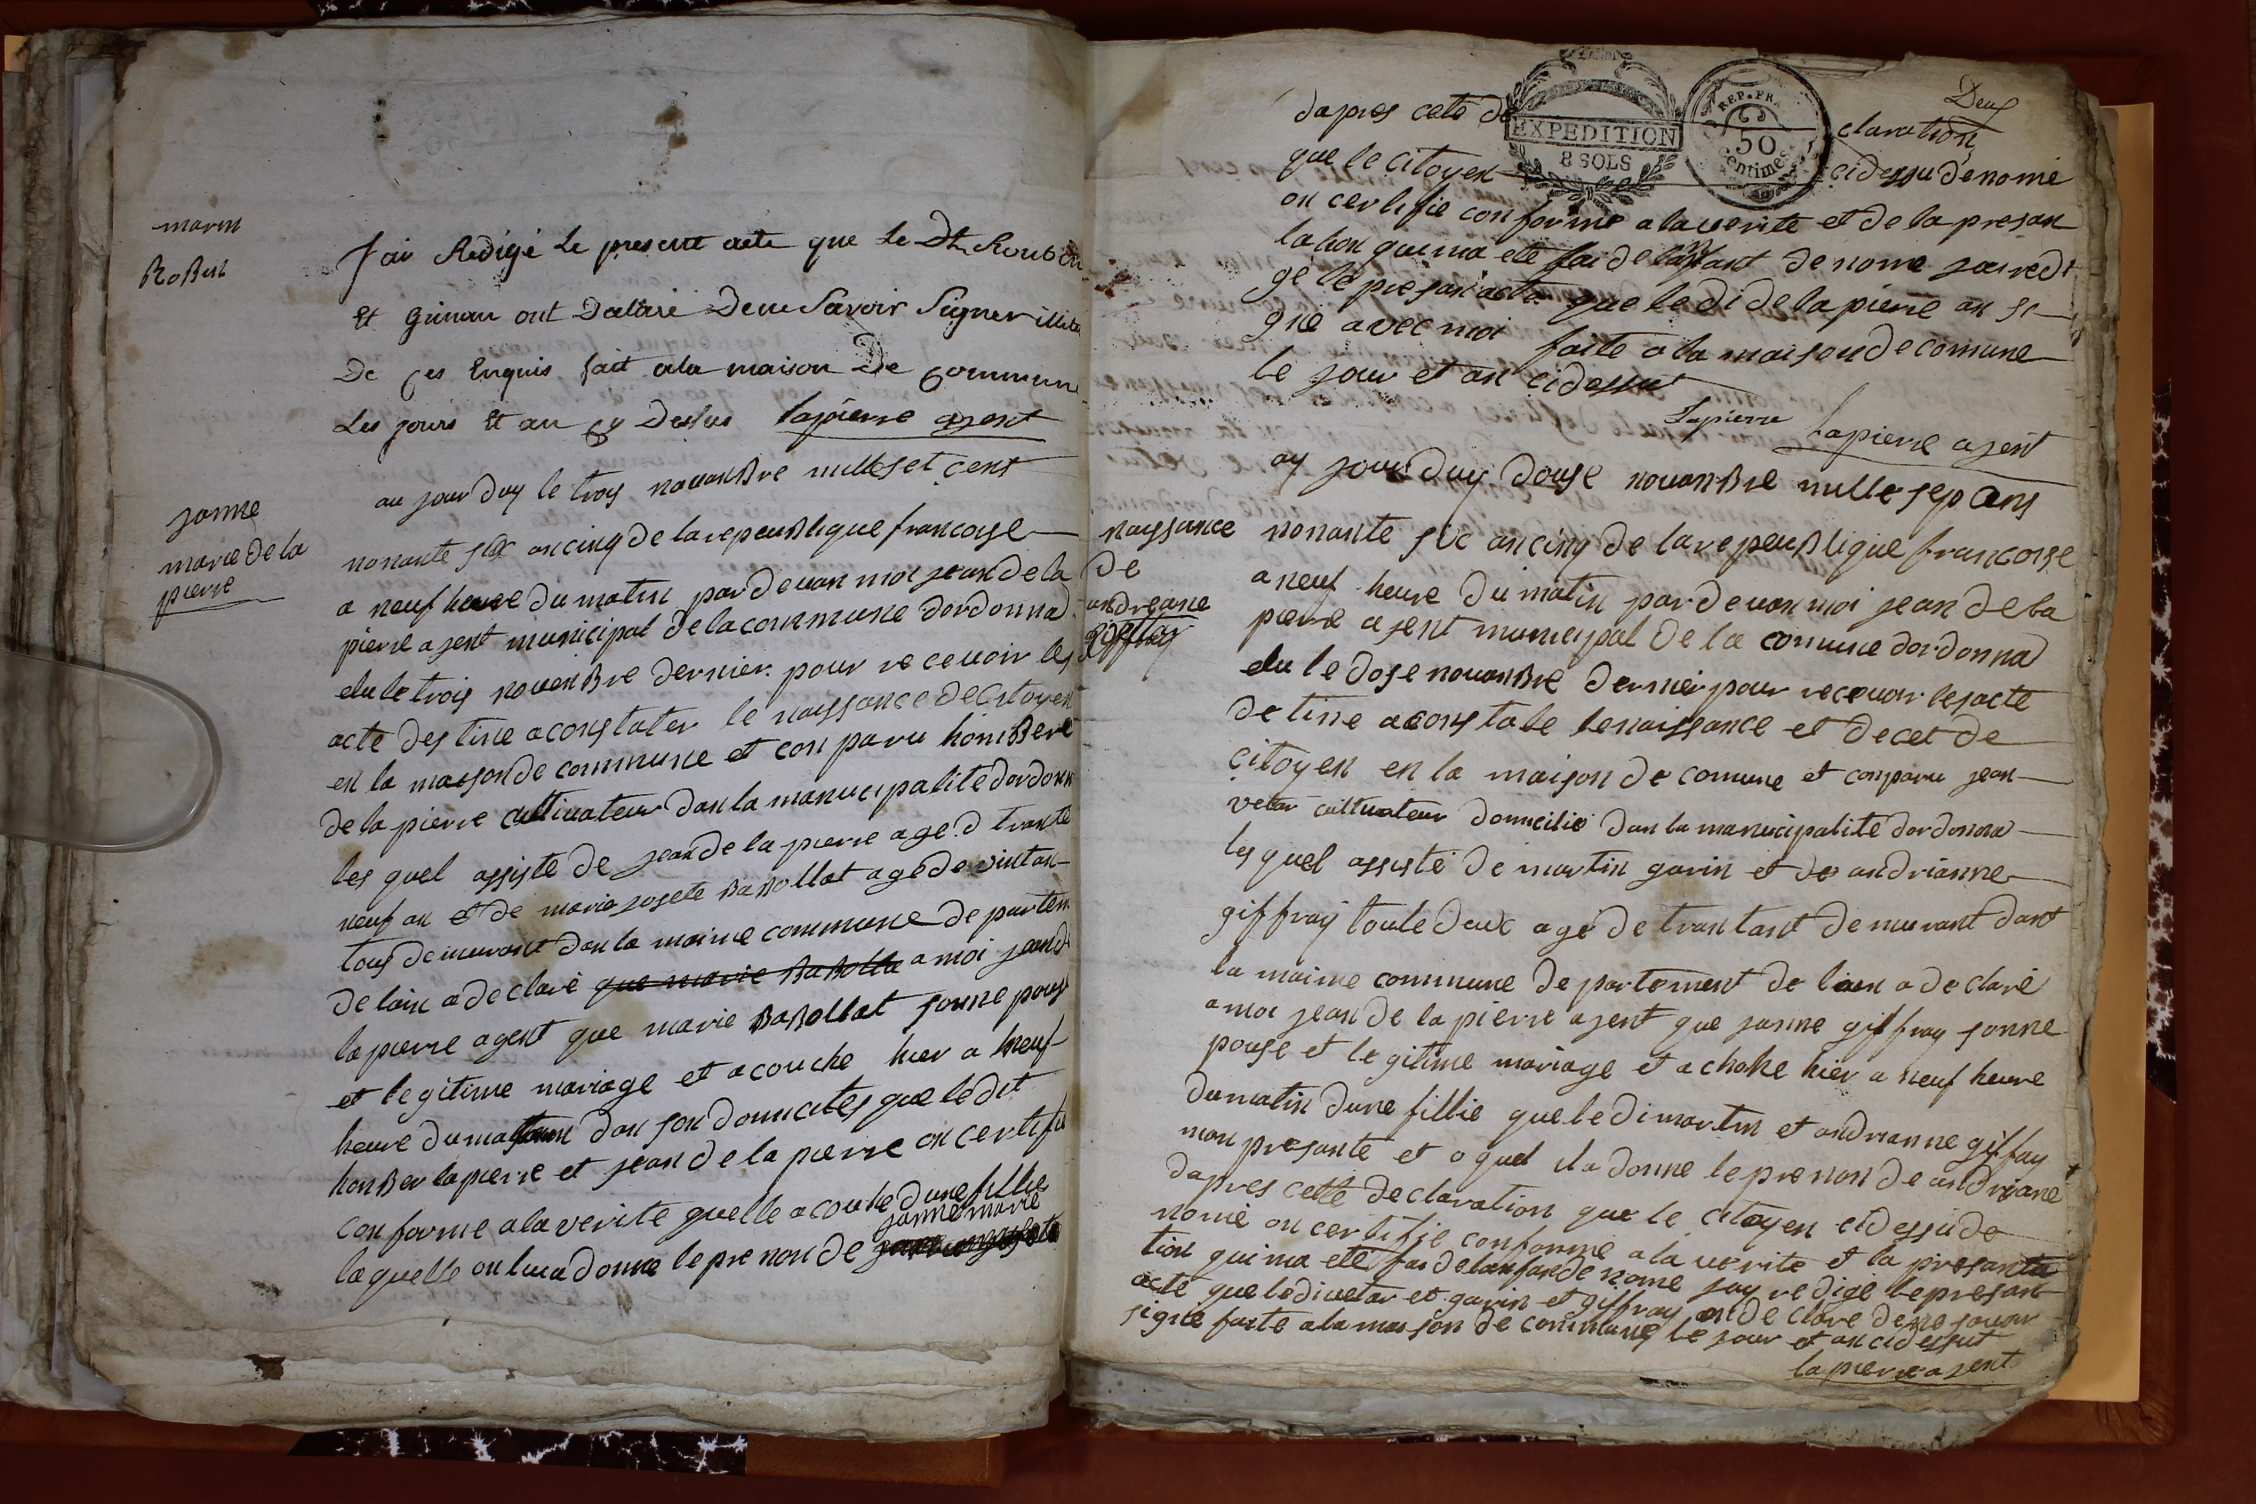 marin
Robert
Jai Redigé Le present acte que Le Dt Roubin
Et ginau ont Declaré De ne Savoir Signer illitt
De ces Enquis fait ala maison De Commune
Les jours Et an cy Dessus lapierre agent
janne
marie de la
pierre
au jour duy le troy novanBre mille set cent
nonante six an cinq de la repeuBlique francoise
a neuf heure du matin par devan moi jean de la
pierre agent municipal de la commune dordonna
elu le trois novenBre dernier pour recevoir les
acte destine a constater le naissance de Citoyen
en la maison de commune et conparu honBere
de la pierre cultivateur dan la manucipalité dordonn
les quel assiste de jean de la pierre age d trante
neuf an et de marie josete BaBollat age de vintan
tous demeurant dan la maime commune de partem
de lain a declaré que marie BaBolla a moi jean d
la pierre agent que marie BaBollat sonne pouse
et legitime mariage et a couche hier a neuf
heure du matin dan son domicites que ledit
honBer lapierre et jean de la pierre on certifie
conforme a la verite quelle a couhe dune fillie
janne marie
la quelle on lui a donne le prenon de
Deux
dapres cete de claration
EXPEDITION
8 SOLS
REP. FRA
50
centimes
que le citoyen cidessu dénomé
on certifie conforme a la verite et de la presan
tation qui ma ete fai de lanfant de nome jai redi
gé le presan acte que le di de la pierre an si
gne avec moi faite a la maison de comune
le jour et an cidessut
Lapierre lapierre agent
naissance
de
andreane
giffray
oy jour duy douse novanBre mille sep Cens
nonante sic an cinq de la repeuBlique francoise
a neuf heure du matin par devan moi jean de la
pierre agent municipal de la comune dordonna
elu le dose novanBre dernier pour recevoir les acte
de tine a constate le naissance et decet de
citoyen en la maison de comune et conparu jean
vetar cultivateur domicilié dan la manucipalité dordonna
les quel assisté de martin garin et de andrianne
giffray toute deux agé de trantant demeurant dant
la maime commune departement de lain a declaré
a moi jean de la pierre agent que janne giffray sonne
pouse et legitime mariage et a chohe hier a neuf heure
du matin dune fillie que le di martin et andrianne giffray
mon presante et a quel il a donne le prenon de andriane
dapres cette declaration que le citoyen cidessu de
nomé on certifie conforme a la verite et la presanta
tion qui ma eté fai de lanfan de nomé jay redigé le presant
acte que le di vetar et garin et giffray on de clare de ne savoir
signe faite a la maison de commune le jour et an cidessut
la pierre agent